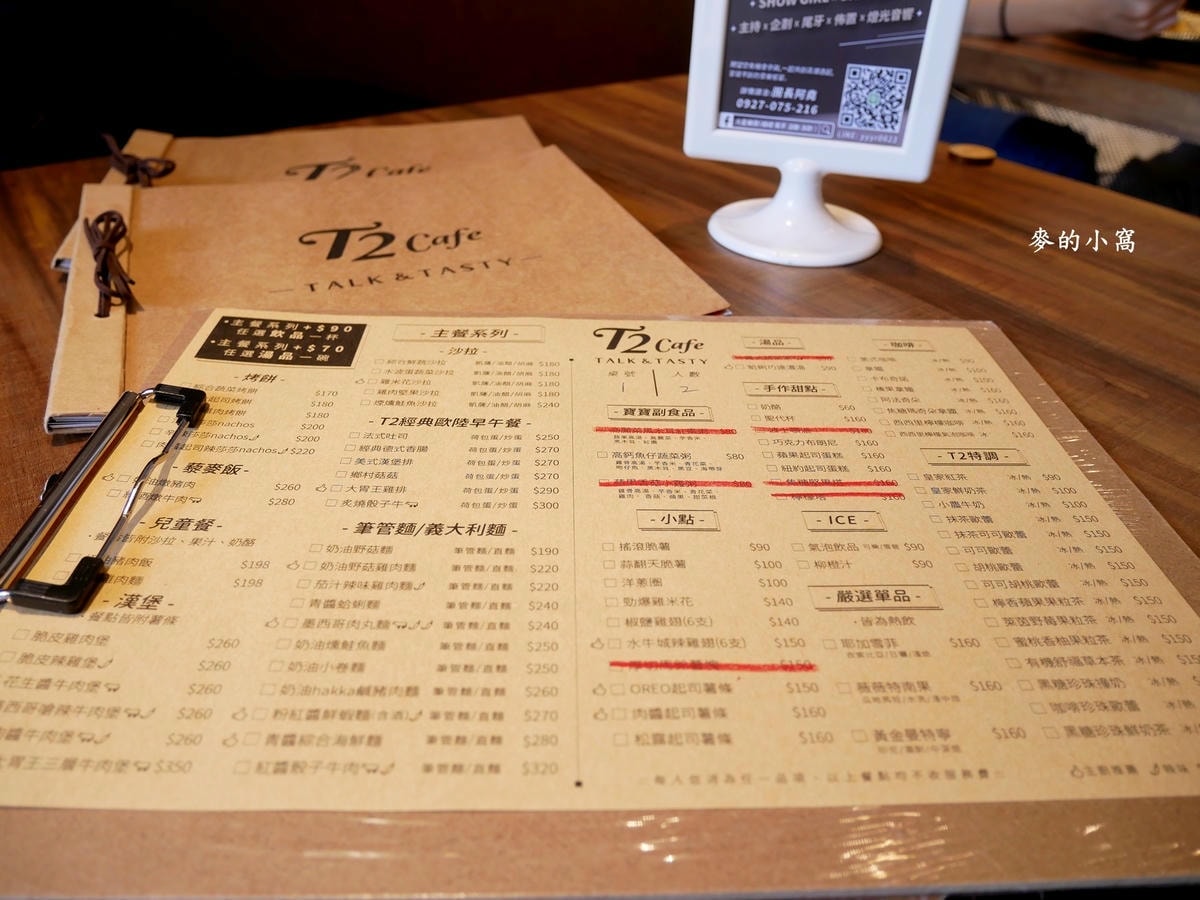 SHOW GIRL
主持 x 企劃 x 尾牙 x 佈置 x 燈光音響
團長阿喬
0927-075-216
麥的小窩
T2 Cafe
T2 Cafe
—TALK & TASTY—
•主餐系列+$90
任選飲品一杯
•主餐系列+$70
任選湯品一碗
- 主餐系列 -
- 烤餅 -
綜合蔬菜烤餅 $170
起司烤餅 $180
$180
莎莎nachos $200
起司莎莎nachos $260
- 藜麥飯 -
燉豬肉 $260
燉牛肉 $280
- 兒童餐 -
餐點皆附沙拉、果汁、奶酪
豬肉飯 $198
肉麵 $198
- 漢堡 -
餐點皆附薯條
脆皮雞肉堡 $260
脆皮辣雞堡 $260
花生醬牛肉堡 $260
墨西哥嗆辣牛肉堡 $260
醬牛肉堡 $260
大胃王三層牛肉堡 $350
- 沙拉 -
綜合鮮蔬沙拉 凱薩/油醋/胡麻 $180
水波蛋蔬菜沙拉 凱薩/油醋/胡麻 $180
雞米花沙拉 凱薩/油醋/胡麻 $180
雞肉堅果沙拉 凱薩/油醋/胡麻 $180
煙燻鮭魚沙拉 凱薩/油醋/胡麻 $240
- T2經典歐陸早午餐 -
法式吐司 荷包蛋/炒蛋 $250
經典德式香腸 荷包蛋/炒蛋 $270
美式漢堡排 荷包蛋/炒蛋 $270
鄉村菇菇 荷包蛋/炒蛋 $270
大胃王雞排 荷包蛋/炒蛋 $290
炙燒骰子牛 荷包蛋/炒蛋 $300
- 筆管麵/義大利麵 -
奶油野菇麵 筆管麵/直麵 $190
奶油野菇雞肉麵 筆管麵/直麵 $220
茄汁辣味雞肉麵 筆管麵/直麵 $220
青醬蛤蜊麵 筆管麵/直麵 $240
墨西哥肉丸麵 筆管麵/直麵 $240
奶油燻鮭魚麵 筆管麵/直麵 $250
奶油小卷麵 筆管麵/直麵 $250
奶油hakka鹹豬肉麵 筆管麵/直麵 $250
粉紅醬鮮蝦麵(含酒) 筆管麵/直麵 $270
青醬綜合海鮮麵 筆管麵/直麵 $280
紅醬骰子牛肉 筆管麵/直麵 $320
T2 Cafe
TALK & TASTY
桌號 人數
1 2
- 寶寶副食品 -
高鈣魚仔蔬菜粥 $80
- 小點 -
搖滾脆薯 $90
蒜翻天脆薯 $100
洋蔥圈 $100
勁爆雞米花 $140
椒鹽雞翅(6支) $140
水牛城辣雞翅(6支) $150
$150
OREO起司薯條 $150
肉醬起司薯條 $160
松露起司薯條 $160
- 湯品 -
$90
- 手作甜點 -
奶酪 $60
聖代杯 $160
巧克力布朗尼 $160
蘋果起司蛋糕 $160
紐約起司蛋糕 $160
- ICE -
氣泡飲品 $90
柳橙汁 $90
- 嚴選單品 -
•皆為熱飲
耶加雪菲 $160
薇薇特南果 $160
黃金曼特寧 $160
- 咖啡 -
美式咖啡 冰/熱 $90
拿鐵 冰/熱
卡布奇諾 冰/熱
榛果拿鐵 冰/熱
阿法奇朵 冰/熱
焦糖瑪奇朵拿鐵 冰/熱
西西里檸檬咖啡 冰/熱
西西里檸檬氣泡咖啡 冰
- T2特調 -
皇家紅茶 冰/熱 $90
皇家鮮奶茶 冰/熱 $100
小農牛奶 冰/熱 $100
抹茶歐蕾 冰/熱 $150
抹茶可可歐蕾 冰/熱 $150
可可歐蕾 冰/熱 $150
胡桃歐蕾 冰/熱 $150
可可胡桃歐蕾 冰/熱 $150
檸香蘋果果粒茶 冰/熱 $150
萊茵野莓果粒茶 冰/熱 $150
蜜桃香柚果粒茶 冰/熱 $150
有機舒福草本茶 冰/熱 $150
黑糖珍珠撞奶 冰/熱
咖啡珍珠歐蕾 冰/熱
黑糖珍珠鮮奶茶 冰/熱
每人低消為任一品項，以上餐點均不收服務費
主廚推薦 辣味